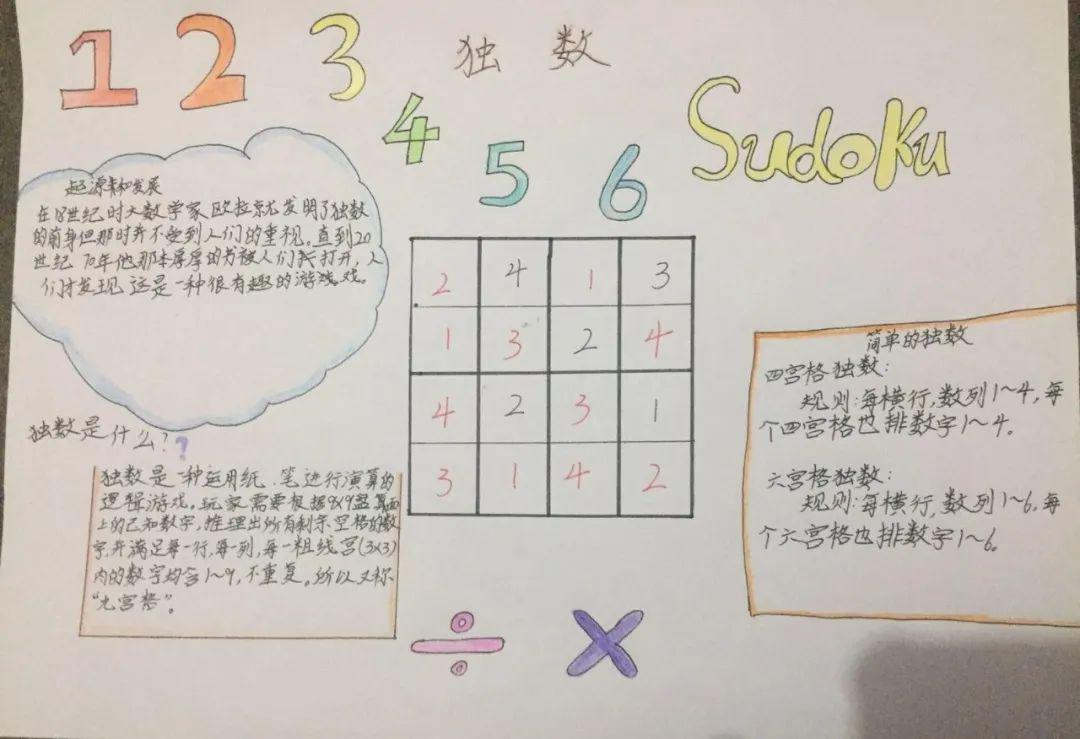 1 2 3 独 数
4 5 6 Sudoku
起源和发展
在18世纪时大数学家欧拉就发明了独数
的前身但那时并不受到人们的重视。直到20
世纪 70年他那本厚厚的书被人们打开,人
们才发现 这是一种很有趣的游戏。
独数是什么??
独数是一种运用纸、笔进行演算的
逻辑游戏。玩家需要根据9x9盘面
上的已知数字,推理出所有剩余空格的数
字,并满足每一行,每一列,每一粗线宫(3x3)
内的数字均含1~9,不重复。所以又称
“九宫格”。
2 4 1 3
1 3 2 4
4 2 3 1
3 1 4 2
÷ ×
简单的独数
四宫格独数:
规则:每横行,数列1~4,每
个四宫格也排数字1~4。
六宫格独数:
规则:每横行,数列1~6,每
个六宫格也排数字1~6。